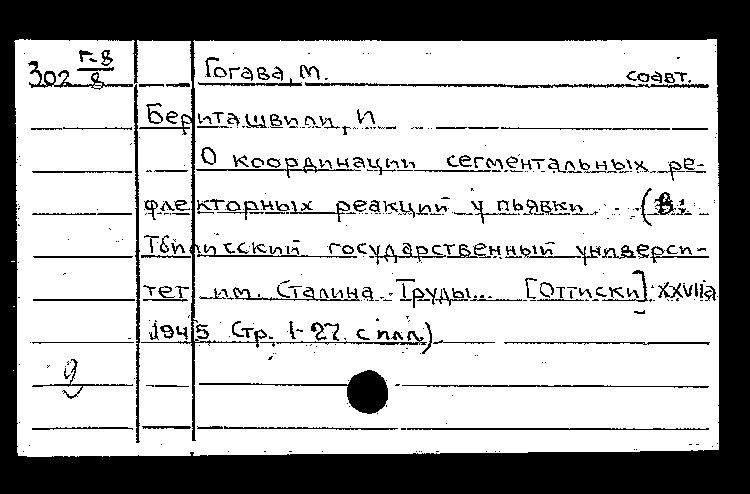 302 Г-8/8 Гогава, М. соавт.
Бериташвили, И
О координации сегментальных ре-
флекторных реакций у пьявки (В:
Тбилисский государственный универси-
тет им. Сталина. Труды... [Оттиски] XXVIIa
1945 Стр. 1-27. с илл.)